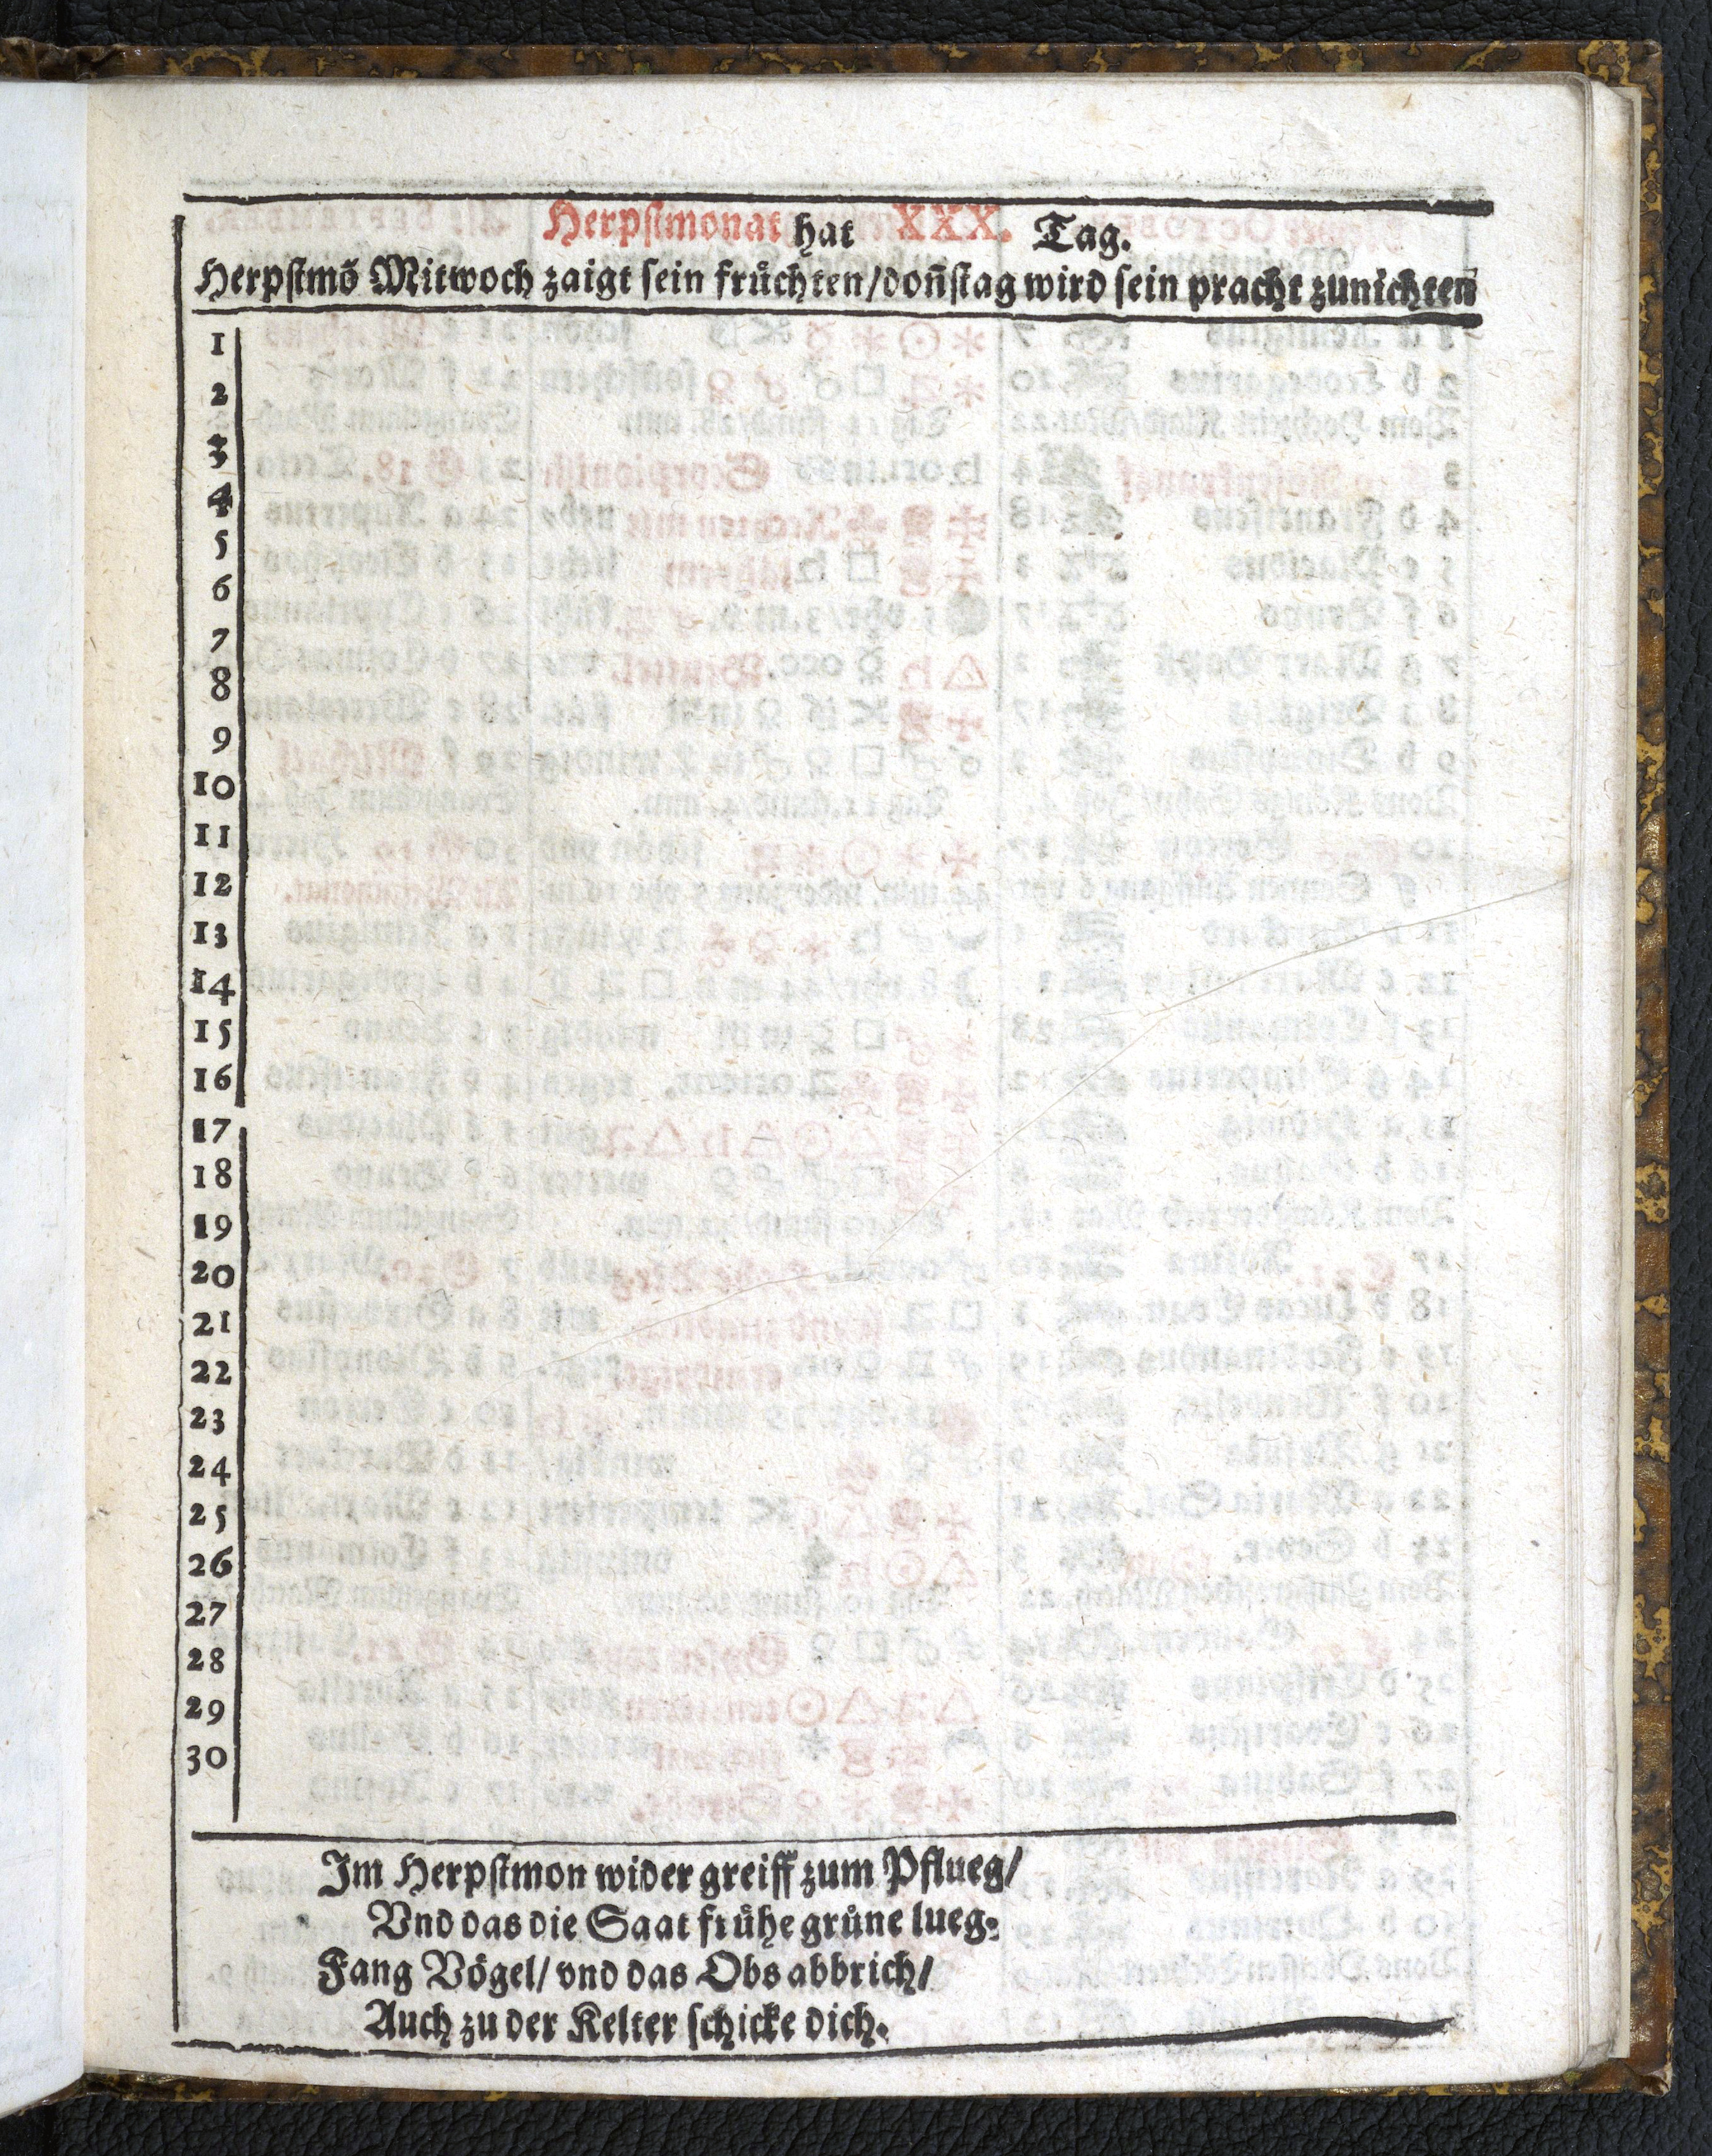 Herpſtmonat hat XXX. Tag.
Herpſtmō Mitwoch zaigt ſein fruͤchten/doñſtag wird ſein pracht zunichten
1
2
3
4
5
6
7
8
9
10
11
12
13
14
15
16
17
18
19
20
21
22
23
24
25
26
27
28
29
30
Im Herpſtmon wider greiff zum Pflueg/
Vnd das die Saat fruͤhe gruͤne lueg.
Fang Voͤgel/ vnd das Obs abbrich/
Auch zu der Kelter ſchicke dich.